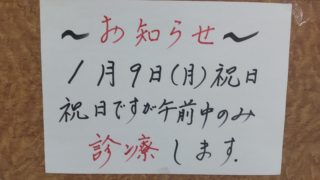 ～お知らせ～
1月9日(月)祝日
祝日ですが午前中のみ
診療します.